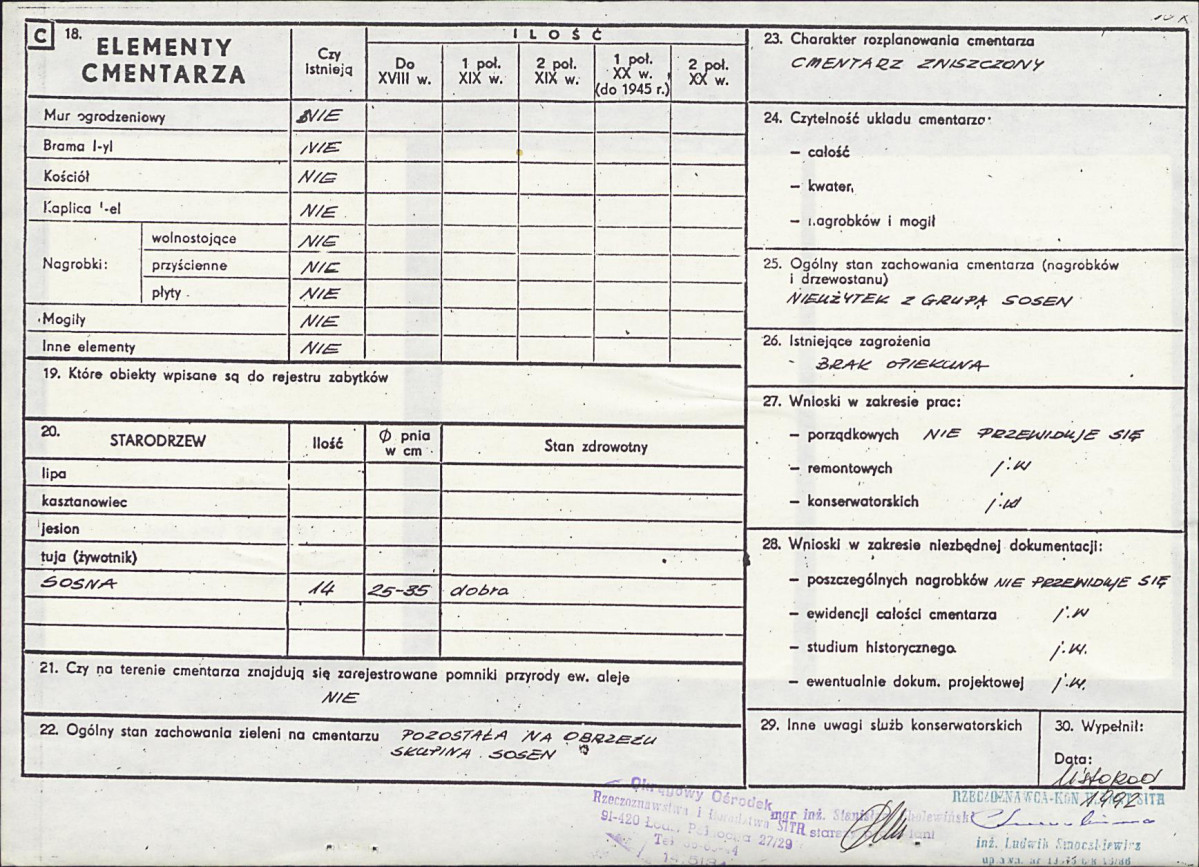 C 18. ELEMENTY CMENTARZA
Czy istnieją
ILOŚĆ
Do XVIII w.
1 poł. XIX w.
2 poł. XIX w.
1 poł. XX w. (do 1945 r.)
2 poł. XX w.
Mur ogrodzeniowy NIE
Brama I-yl NIE
Kościół NIE
Kaplica -el NIE
Nagrobki:
wolnostojące NIE
przyścienne NIE
płyty NIE
Mogiły NIE
Inne elementy NIE
19. Które obiekty wpisane są do rejestru zabytków
20. STARODRZEW
Ilość
Ø pnia w cm
Stan zdrowotny
lipa
kasztanowiec
jesion
tuja (żywotnik)
SOSNA 14 25-35 dobra
21. Czy na terenie cmentarza znajdują się zarejestrowane pomniki przyrody ew. aleje
NIE
22. Ogólny stan zachowania zieleni na cmentarzu POZOSTAŁA NA OBRZEŻU
SKUPINA SOSEN
23. Charakter rozplanowania cmentarza
CMENTARZ ZNISZCZONY
24. Czytelność układu cmentarza
– całość
– kwater
– nagrobków i mogił
25. Ogólny stan zachowania cmentarza (nagrobków
i drzewostanu)
NIEUŻYTEK Z GRUPĄ SOSEN
26. Istniejące zagrożenia
- BRAK OPIEKUNA
27. Wnioski w zakresie prac:
– porządkowych NIE PRZEWIDUJE SIĘ
– remontowych j.w
– konserwatorskich j.w
28. Wnioski w zakresie niezbędnej dokumentacji:
– poszczególnych nagrobków NIE PRZEWIDUJE SIĘ
– ewidencji całości cmentarza j.w
– studium historycznego j.w.
– ewentualnie dokum. projektowej j.w.
29. Inne uwagi służb konserwatorskich
30. Wypełnił:
Data:
Listopad
1992
Okręgowy Ośrodek
Rzeczoznawstwa i Doradztwa SITR
91-420 Łódź, Północna 27/29
mgr inż.
inż. Ludwik